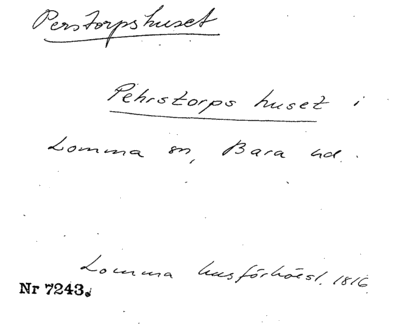 Perstorpshuset
Pehrstorps huset i
Lomma sn, Bara hd.
Lomma husförhörsl. 1816
Nr 7243.